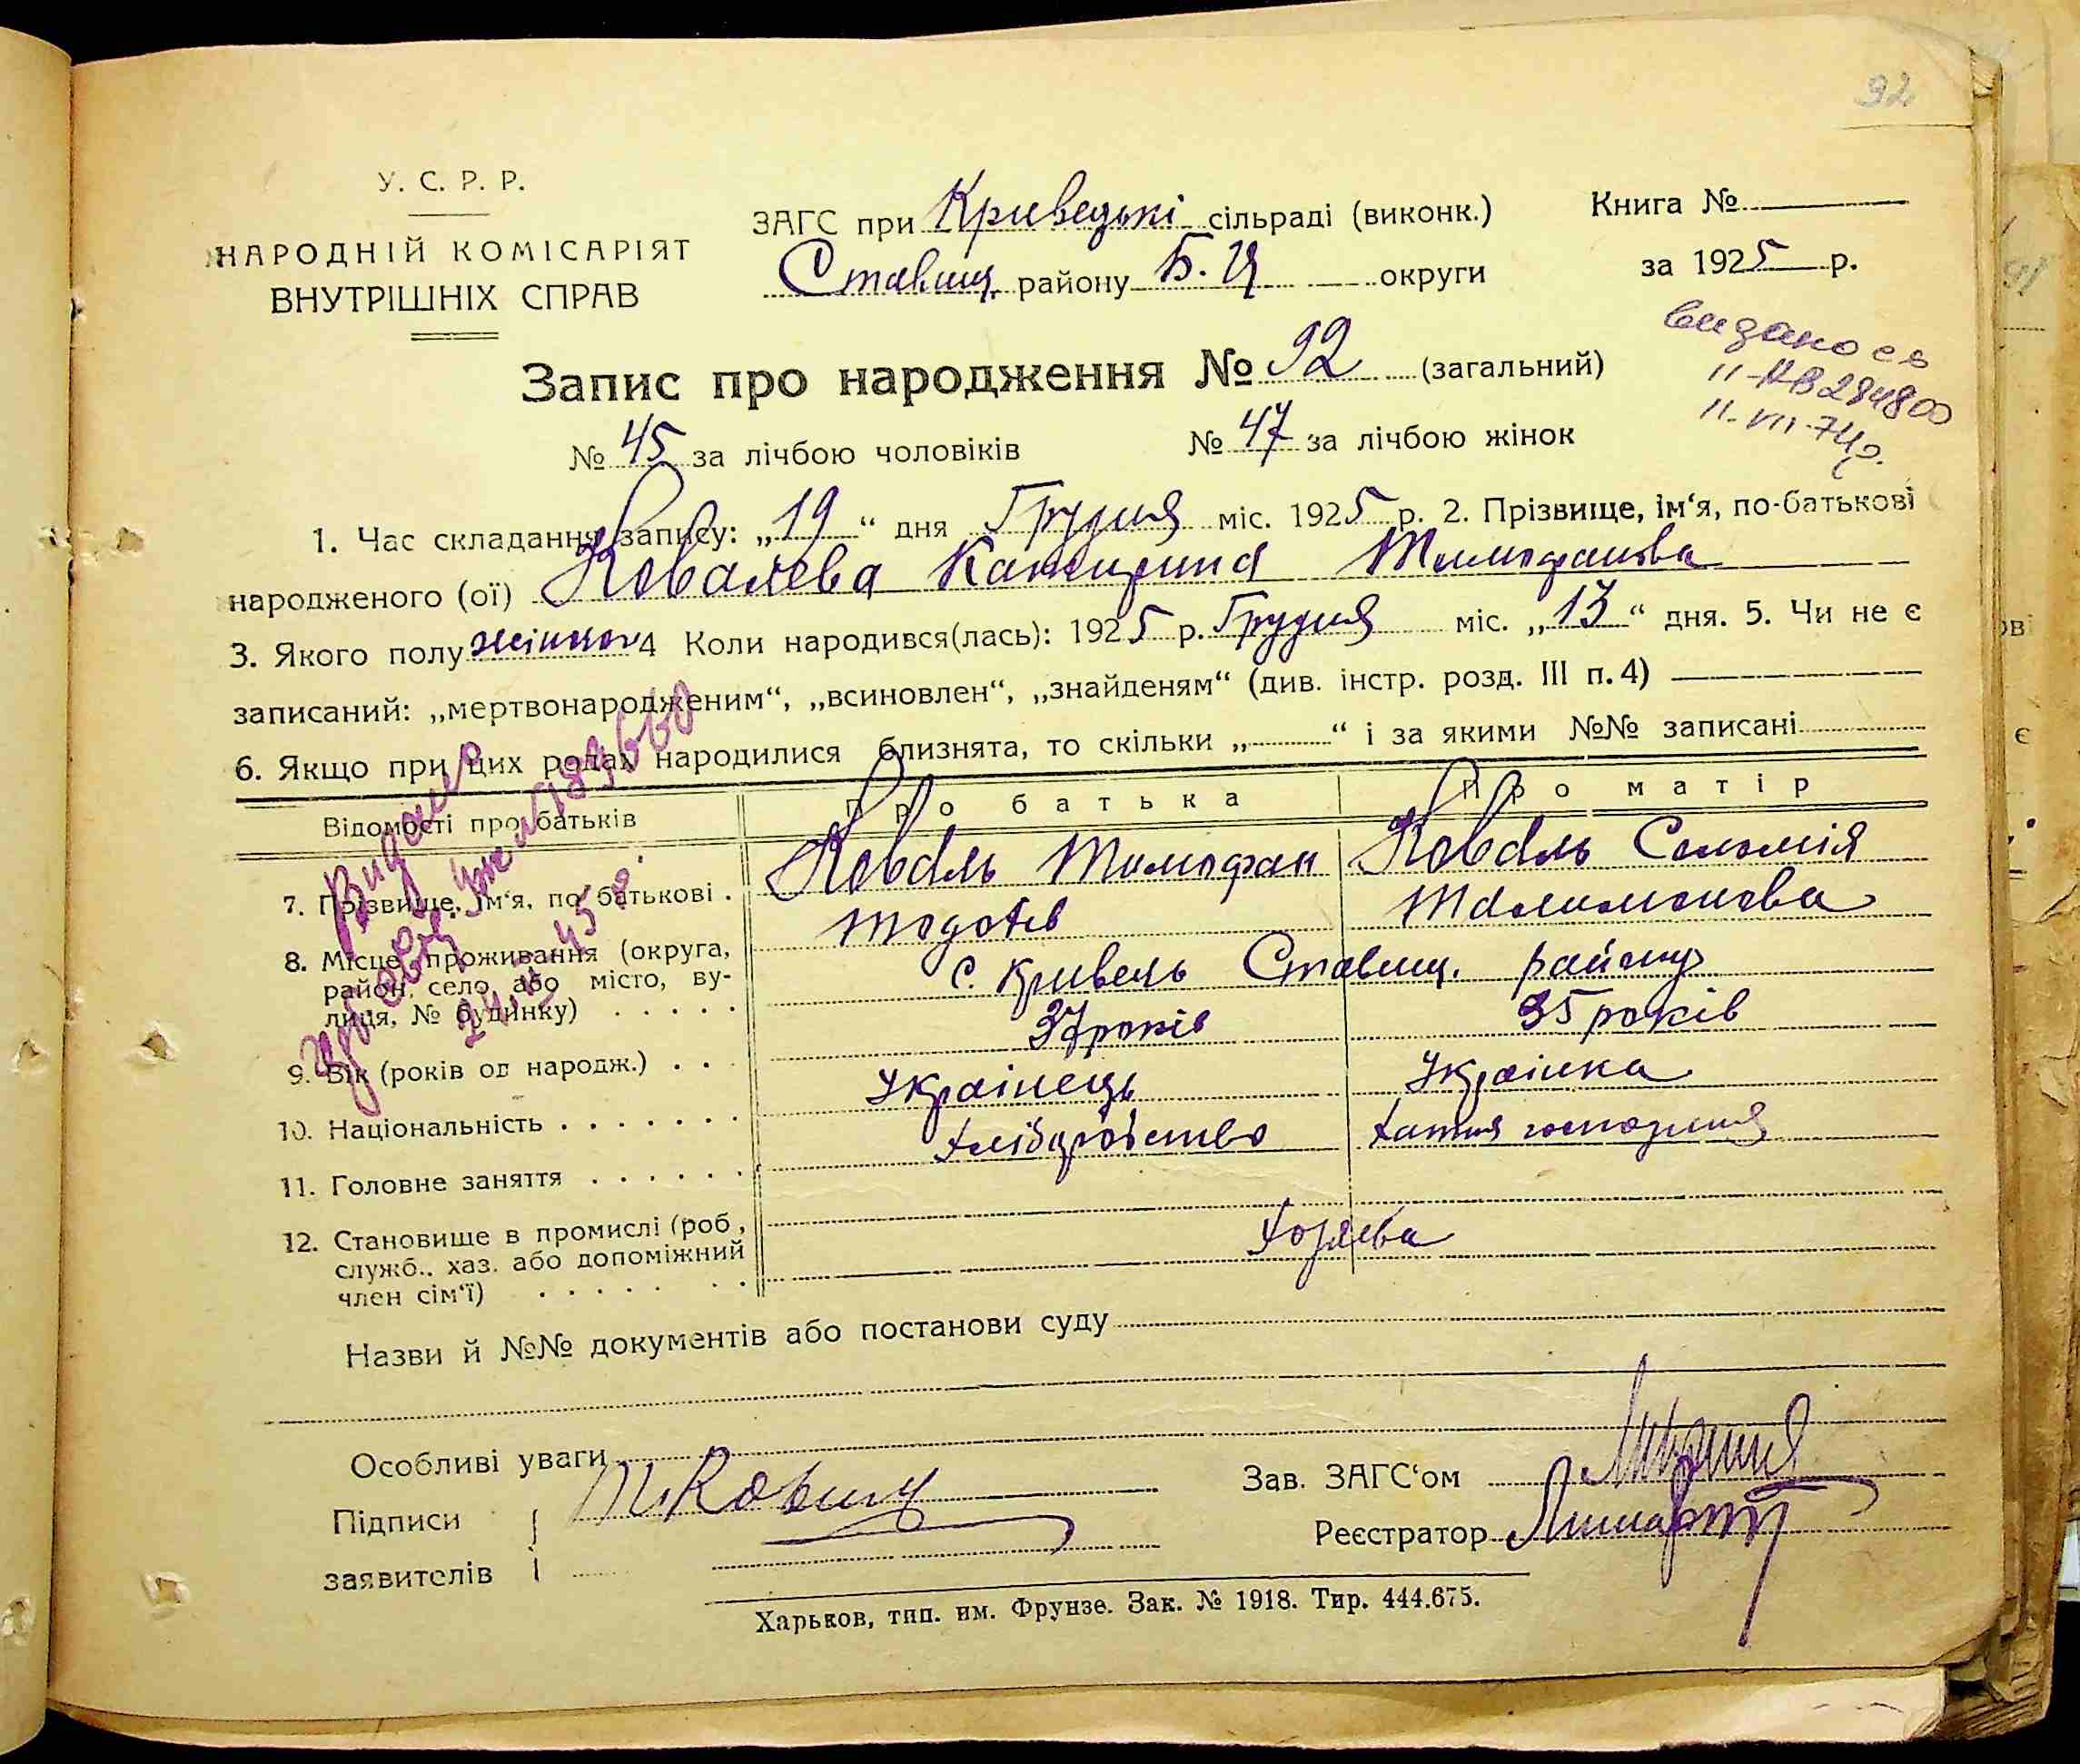 92
У. С. Р. Р.
НАРОДНІЙ КОМІСАРІЯТ
ВНУТРІШНІХ СПРАВ
ЗАГС при Кривецькі сільраді (виконк.)
Ставищ. району Б. Ц округи
Книга №
за 1925 р.
видано св
II-
11-VII-74р.
Запис про народження № 92 (загальний)
№ 45 за лічбою чоловіків № 47 за лічбою жінок
1. Час складання запису: „19“ дня Грудня міс. 1925 р. 2. Прізвище, ім‘я, по-батькові
народженого (ої) Ковалева Катерина Тимофанова
3. Якого полу жіночого 4 Коли народився(лась): 1925 р. Грудня міс. „13“ дня. 5. Чи не є
записаний: „мертвонародженим“, „всиновлен“, „знайденям“ (див. інстр. розд. III п. 4)
6. Якщо при цих родах народилися близнята, то скільки „ “ і за якими №№ записані
Відомості про батьків Про батька Про матір
7. Прізвище, ім‘я, по батькові . Коваль Тимофан Коваль Соломія
Тодотів Талимонова
8. Місце проживання (округа, район, село або місто, ву-
лиця, № будинку) . . . . . с. Кривець Ставищ. району
9. Вік (років од народж.) . . . 37 років 35 років
10. Національність . . . . . . . Українець Українка
11. Головне заняття . . . . . . Хліборобство Хатня господиня
12. Становище в промислі (роб., служб., хаз. або допоміжний
член сім‘ї) . . . . . . . Хозяєва
Видано
24. 45 р.
Назви й №№ документів або постанови суду
Особливі уваги
Підписи
заявителів
Зав. ЗАГС‘ом
Реєстратор
Харьков, тип. им. Фрунзе. Зак. № 1918. Тир. 444.675.